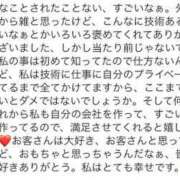 なことされたことない、すごいなぁ。外
から雑と思ったけど、こんなに技術ある
いなぁとかいろいろ褒めてくれてありが
ざいました、しかし当たり前じゃないで
私の事は初めて知ってたので仕方ないん
ど、私は技術に仕事に自分のプライベー
てるまで全てかけてますから、ここまで
いとダメではないでしょうか。そして何
れから私も自分の会社を作って、すご
作ってるので、満足させてくれると嬉し
❤️お客さんは大好き、お客さんと思って
ど、おもちゃと思っちゃうんだなぁ、皆
好きありがとう。私はとても幸せです。